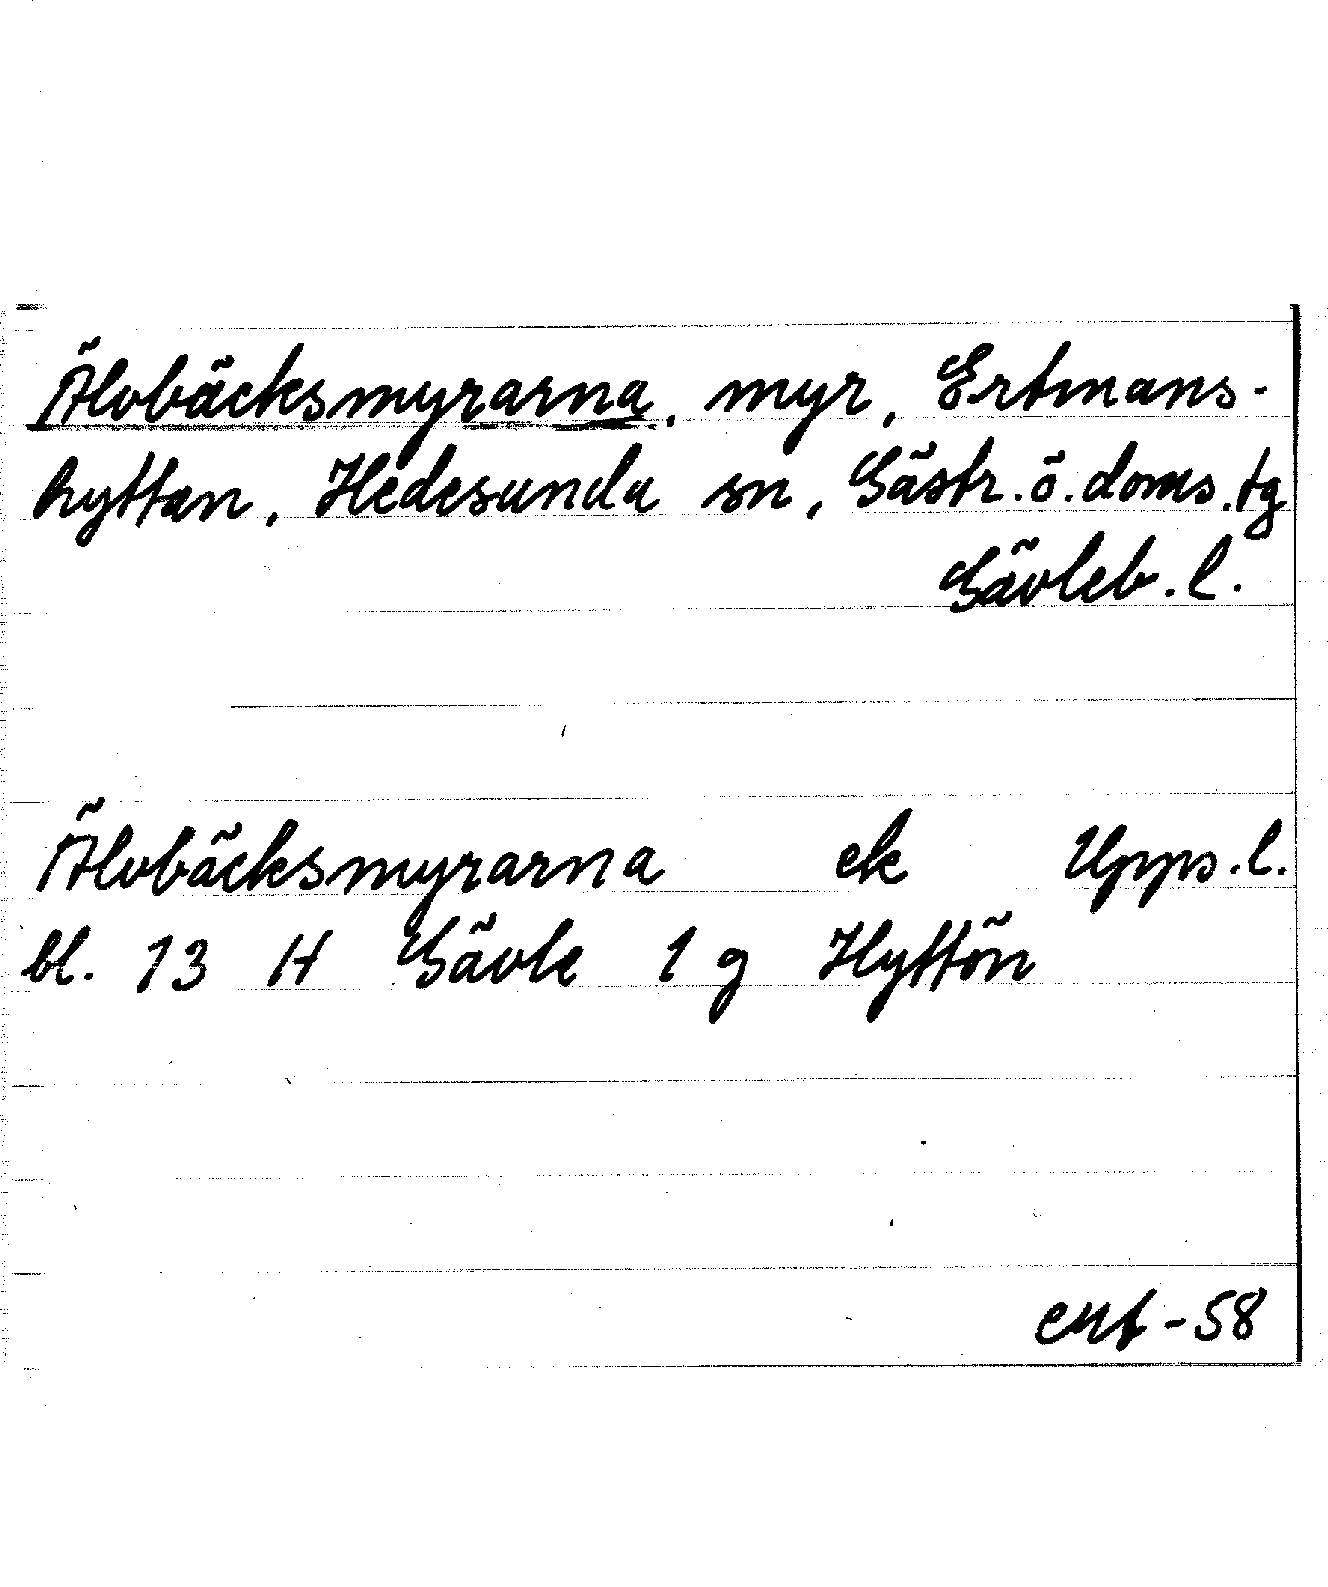 Älvbäcksmyrarna, myr, Ertmans-
hyttan, Hedesunda sn, Gästr. ö. doms.tg
Gävleb. l.
Älvbäcksmyrarna ek Upps. l.
bl. 13 H Gävle 1 g Hyttön
-58